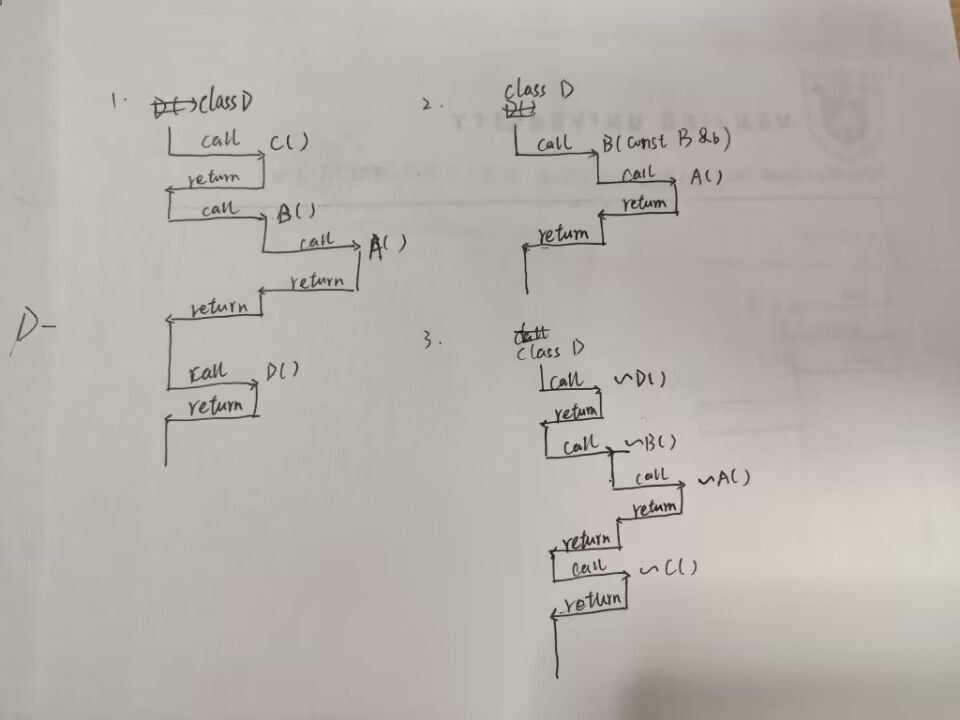 1. D() class D
call C()
return
call B()
call A()
return
return
call D()
return
D-
2. class D
D()
call B(const B &b)
call A()
return
return
3. call
class D
call ~D()
return
call ~B()
call ~A()
return
return
call ~C()
return